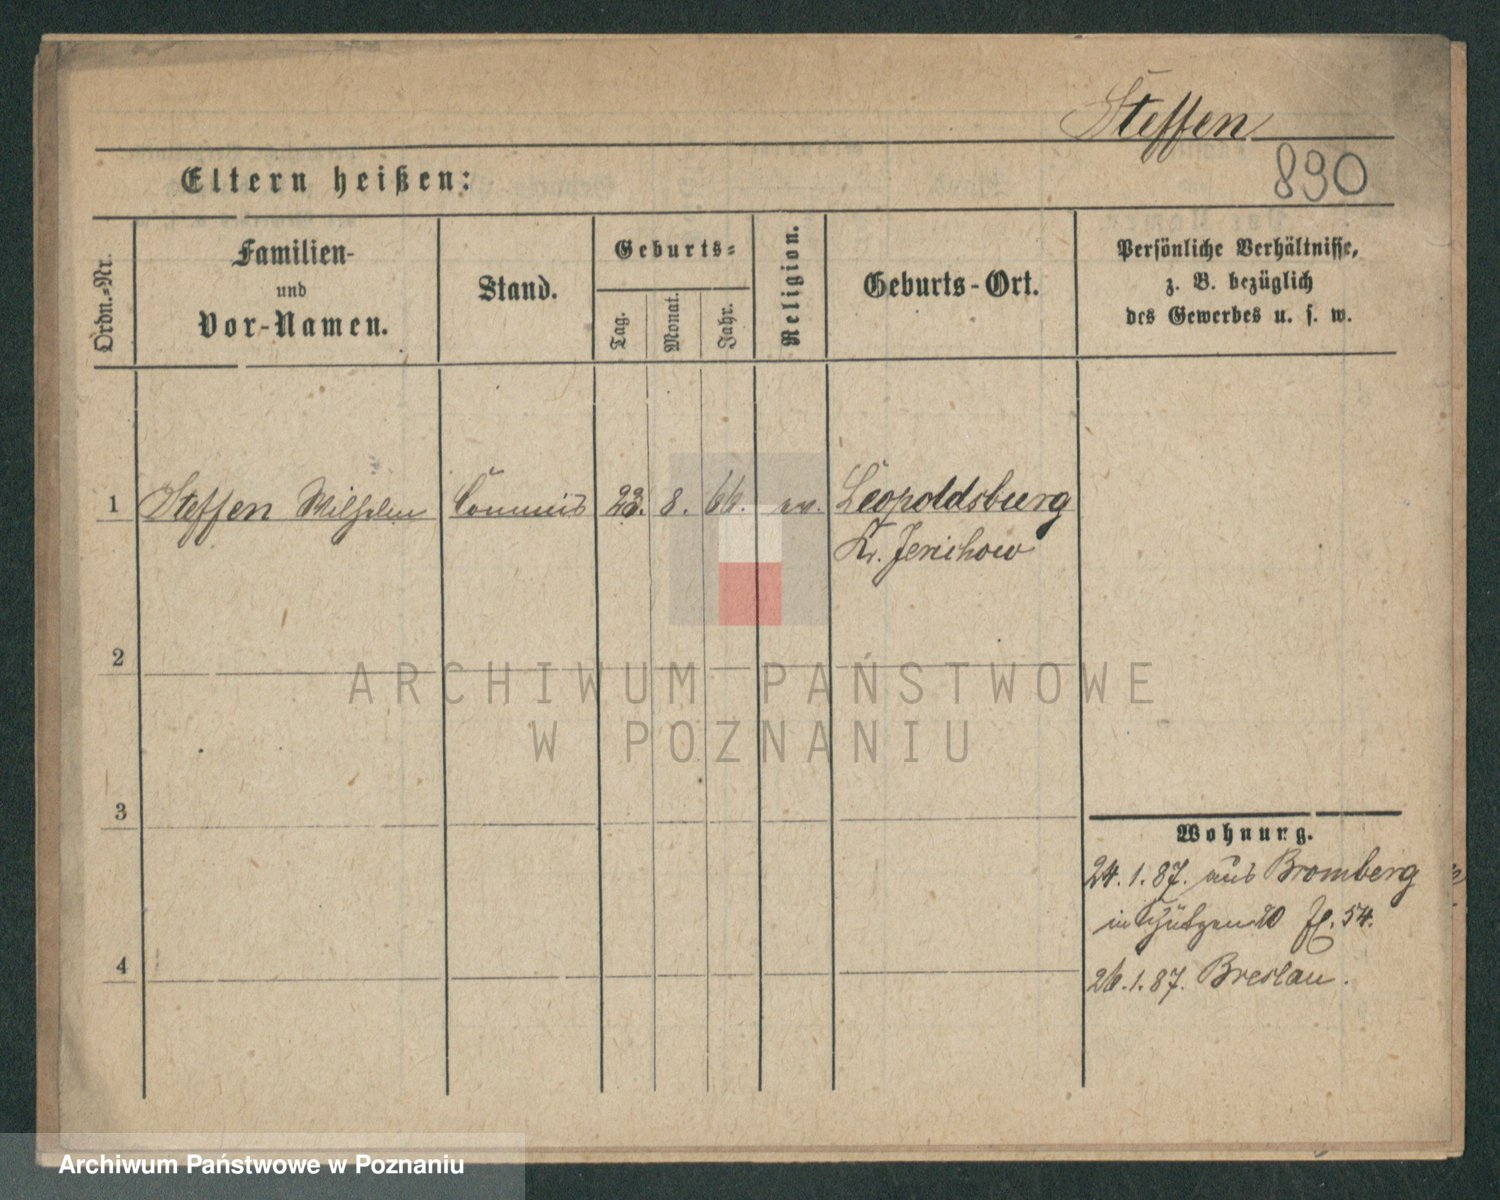 Steffen
890
Eltern heißen:
Ordn.-Nr.
Familien-
und
Vor-Namen.
Stand.
Geburts-
Tag.
Monat.
Jahr.
Religion.
Geburts-Ort.
Persönliche Verhältnisse,
z. B. bezüglich
des Gewerbes u. s. w.
1 Steffen Wilhelm Commis 23. 8. 66. ev. Leopoldsburg
Kr. Jerichow
2
3
4
Wohnung.
24. 1. 87. aus Bromberg
in 54.
26. 1. 87. Breslau.
ARCHIWUM PAŃSTWOWE
W POZNANIU
Archiwum Państwowe w Poznaniu